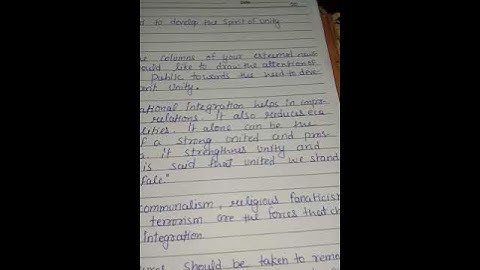 d to develop the spirit of unity
e columns of your esteemed news
ould like to draw the attention of
public towards the need to dev
unity.
ational integration helps in impro
relations. It also reduces eco
lities. It alone can be the
f a strong united and pros
. It strengthens unity and
is said that united we stand
fale."
communalism, religious fanaticism
terrorism are the forces that ch
integration.
should be taken to reme